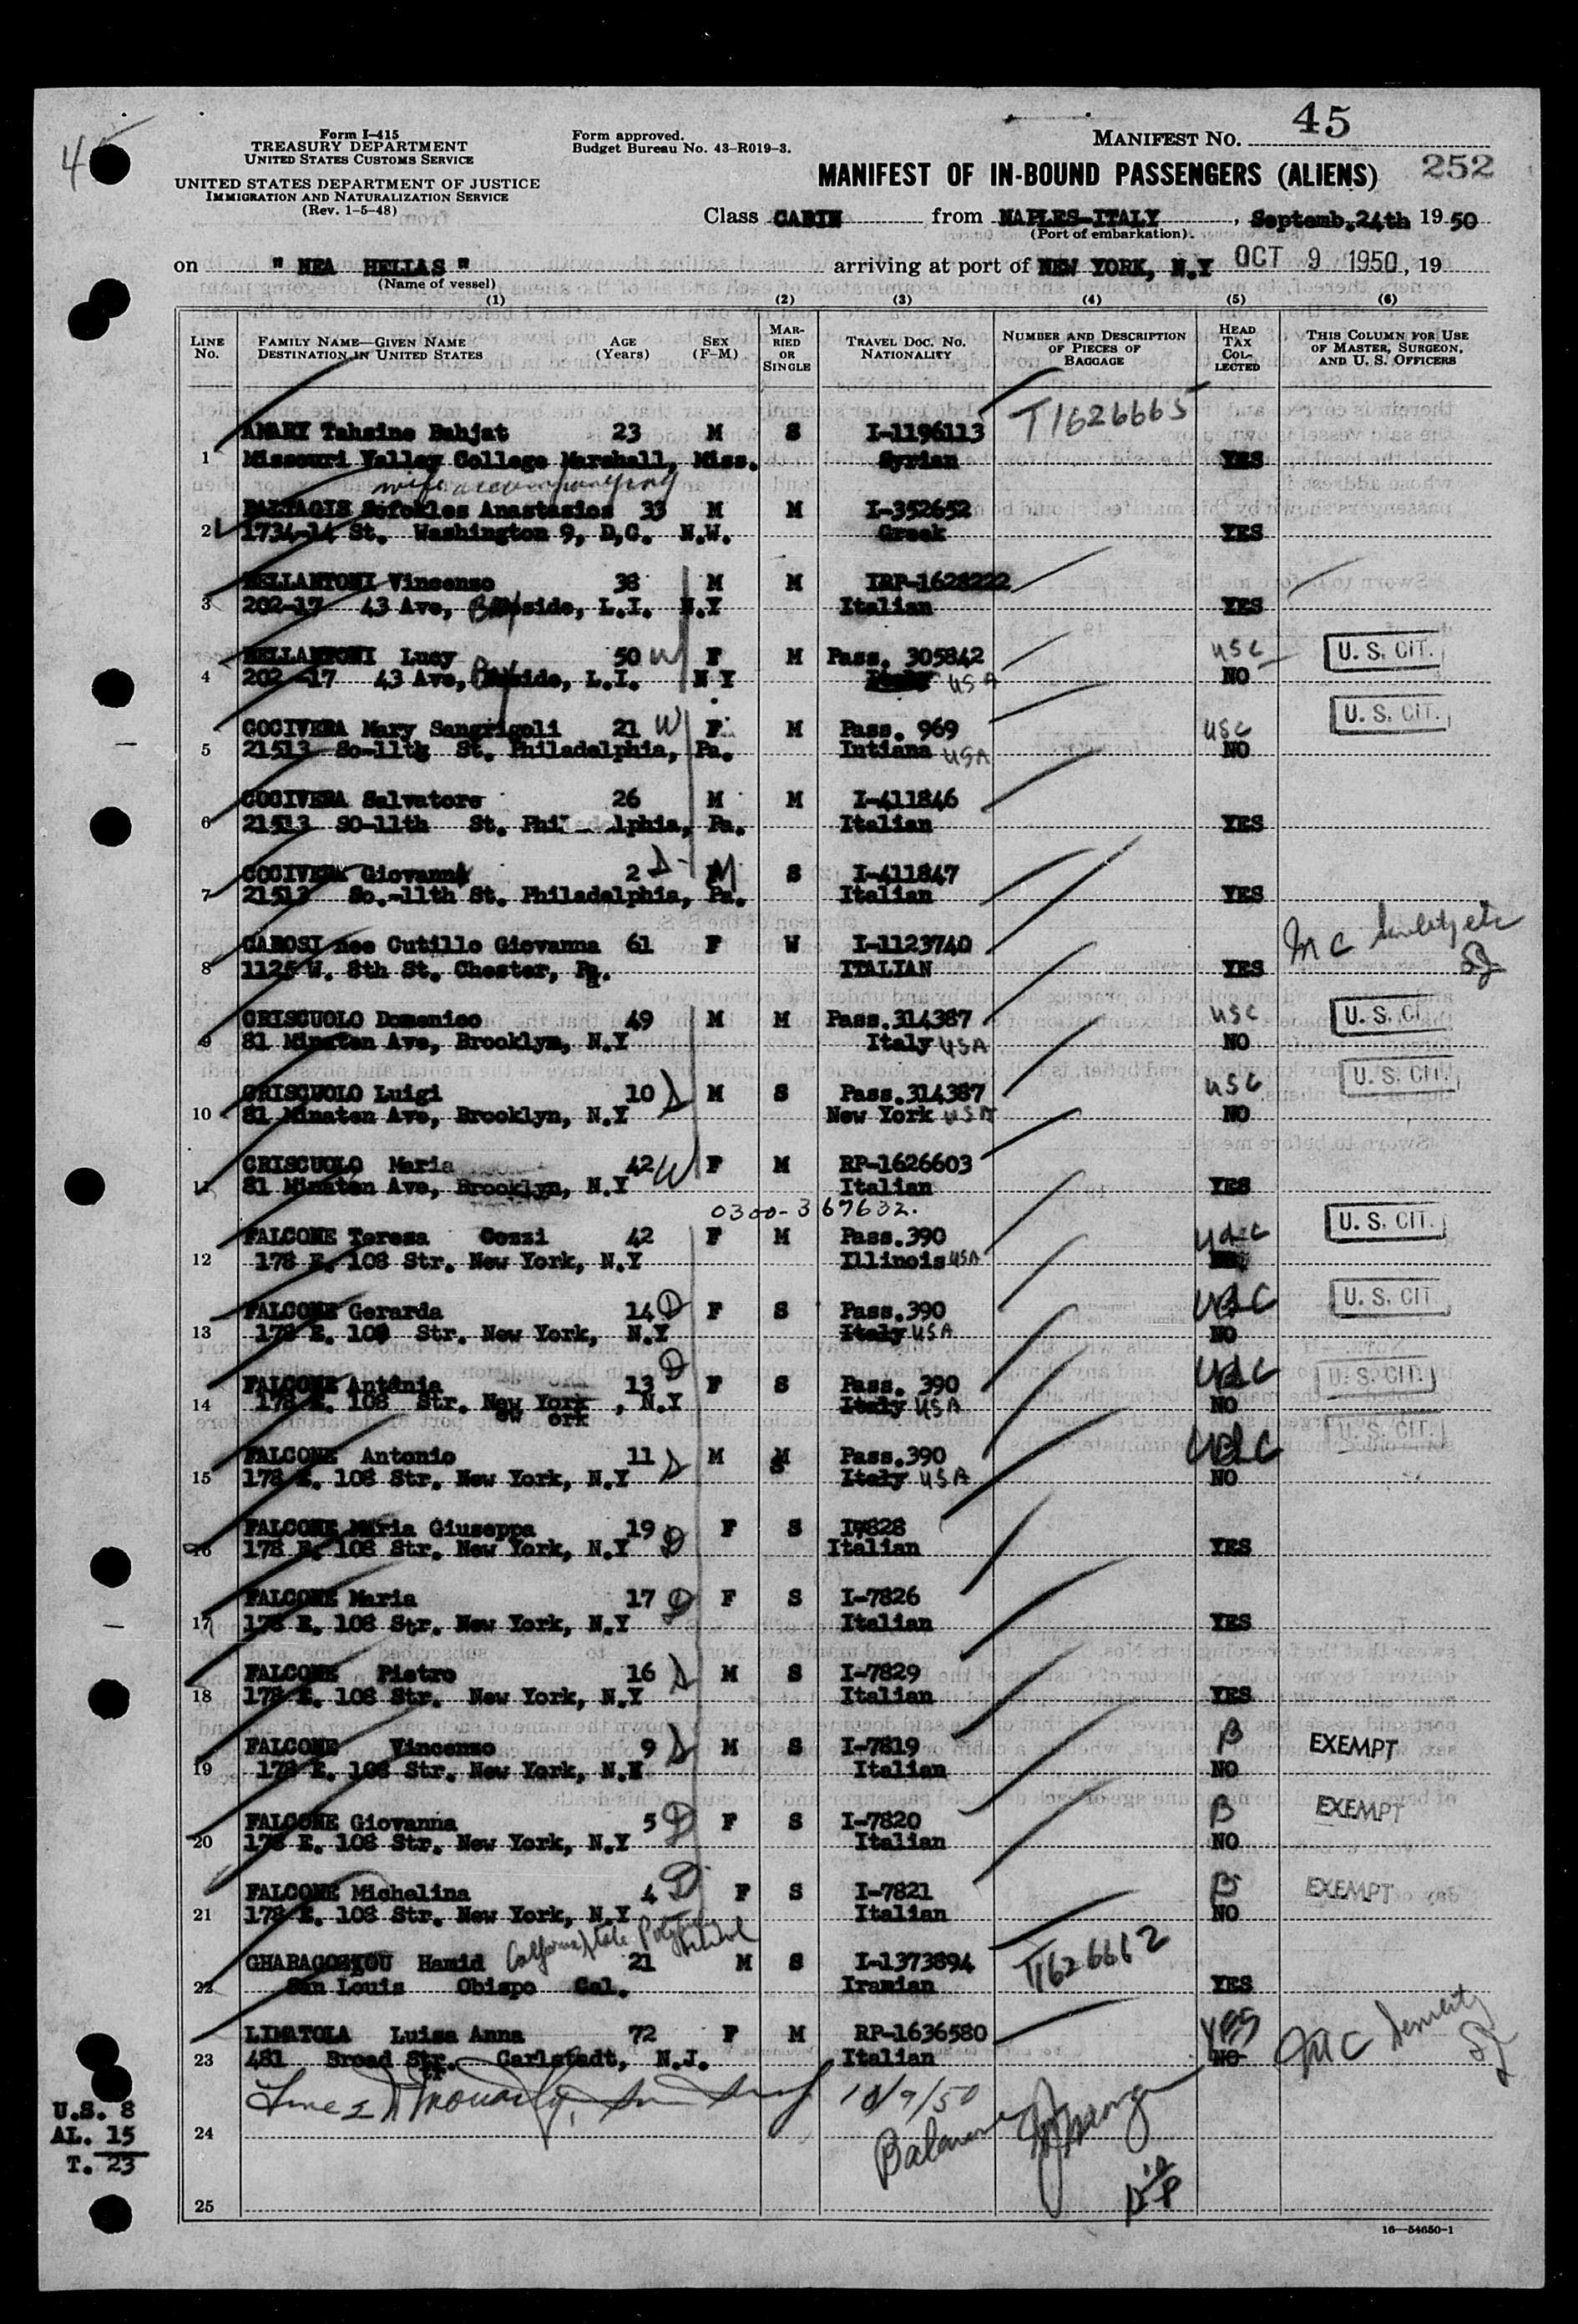 45
Form I-415
TREASURY DEPARTMENT
UNITED STATES CUSTOMS SERVICE
UNITED STATES DEPARTMENT OF JUSTICE
IMMIGRATION AND NATURALIZATION SERVICE
(Rev. 1-5-48)
Form approved.
Budget Bureau No. 43-R019-3.
MANIFEST NO. 45
252
MANIFEST OF IN-BOUND PASSENGERS (ALIENS)
Class CABIN from NAPLES-ITALY, Septemb.24th 19 50
(Port of embarkation)
on " NEA HELLAS " arriving at port of NEW YORK, N.Y OCT 9 1950, 19
(Name of vessel)
(1) (2) (3) (4) (5) (6)
LINE No. FAMILY NAME—GIVEN NAME DESTINATION IN UNITED STATES AGE (Years) SEX (F-M) MARRIED OR SINGLE TRAVEL DOC. NO. NATIONALITY NUMBER AND DESCRIPTION OF PIECES OF BAGGAGE HEAD TAX COLLECTED THIS COLUMN FOR USE OF MASTER, SURGEON, AND U. S. OFFICERS
AMARY Tahsine Bahjat 23 M S I-1196113 T1626665
1 Missouri Valley College Marshall, Miss. Syrian YES
wife accompanying
BALTAGIS Sofokles Anastasios 33 M M I-352652
2 1734-14 St. Washington 9, D,C. N.W. Greek YES
BELLANTONI Vincenzo 38 M M IRP-1628222
3 202-17 43 Ave, Bayside, L.I. N.Y Italian YES
BELLANTONI Lucy 50 W F M Pass. 305842 USC U. S. CIT.
4 202-17 43 Ave, Bayside, L.I. N Y Italy USA NO
COCIVERA Mary Sangrigoli 21 W F M Pass. 969 USC U. S. CIT.
5 21513 So-11th St. Philadelphia, Pa. Intiana USA NO
COCIVERA Salvatore 26 M M I-411846
6 21513 SO-11th St. Phil lphia, Pa. Italian YES
COCIVERA Giovann 2 D M S I-411847
7 21513 So.-11th St. Philadelphia, Pa. Italian YES
CAROSI nee Cutillo Giovanna 61 F W I-1123740 MC
8 1125 W. 8th St. Chester, Pa. ITALIAN YES
CRISCUOLO Domenico 49 M M Pass.314387 USC U. S. CI
9 81 Minaten Ave, Brooklyn, N.Y Italy USA NO
CRISCUOLO Luigi 10 D M S Pass.314387 USC U. S. CIT.
10 81 Minaten Ave, Brooklyn, N.Y New York USA NO
CRISCUOLO Maria 42 W F M RP-1626603
11 81 Minaten Ave, Brooklyn, N.Y Italian YES
0300-367632.
FALCONE Teresa Cozzi 42 F M Pass.390 USC U. S. CIT.
12 178 E. 108 Str. New York, N.Y Illinois USA
FALCONE Gerarda 14 D F S Pass.390 USC U. S. CIT
13 178 E. 108 Str. New York, N.Y Italy USA NO
FALCONE Antonia 13 D F S Pass. 390 USC U. S. CIT.
14 178 E. 108 Str. New York, N.Y Italy USA NO
FALCONE Antonio 11 D M S Pass.390 USC U. S. CIT.
15 178 E. 108 Str. New York, N.Y Italy USA NO
FALCONE Maria Giuseppa 19 D F S I-7828
16 178 E. 108 Str. New York, N.Y Italian YES
FALCONE Maria 17 D F S I-7826
17 178 E. 108 Str. New York, N.Y Italian YES
FALCONE Pietro 16 D M S I-7829
18 178 E. 108 Str. New York, N.Y Italian YES
FALCONE Vincenzo 9 D M S I-7819 B EXEMPT
19 178 E. 108 Str. New York, N.Y Italian NO
FALCONE Giovanna 5 D F S I-7820 B EXEMPT
20 178 E. 108 Str. New York, N.Y Italian NO
FALCONE Michelina 4 D F S I-7821 B EXEMPT
21 178 E. 108 Str. New York, N.Y Italian NO
California State Polytechnic School
GHARAGOSYOU Hamid 21 M S I-1373894 T1626662
22 San Louis Obispo Cal. Iranian YES
LIMATOLA Luisa Anna 72 F M RP-1636580 YES MC
23 481 Broad Str. Carlstadt, N.J. Italian NO
10/9/50
24
25
U.S. 8
AL. 15
T. 23
16—54650-1